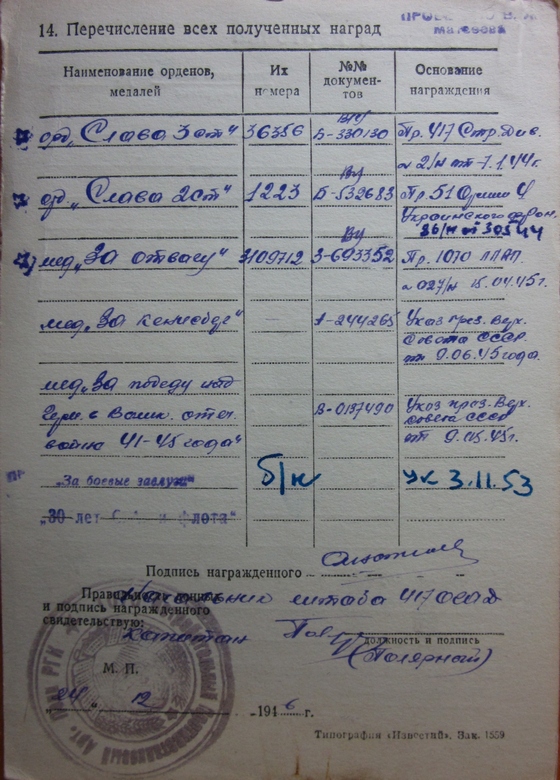 14. Перечисление всех полученных наград
Наименование орденов, медалей
Их номера
№№ документов
Основание награждения
орд. „Слава 3 ст" 36356 Б-330130 Пр. 417 Стр. Див.
2/н от 7.1.44 г.
орд. „Слава 2 ст" 1223 Б-532683 Пр. 51 Армии 4
Украинского фрон.
36/н от 30.5.44
мед. „За отвагу" 3109712 З-693352 Пр. 1070
027/н 15.04.45 г.
мед. „За А-244265 Указ през. Верх.
Совета СССР
от 9.06.45 года.
мед. „За победу над
Герм. в Велик. отеч. В-0137490 Указ през. Верх.
войне 41-45 года" Совета СССР
от 9.05.45 г.
„За боевые заслуги" б/н Ук 3.11.53
„30 лет и флота"
Подпись награжденного
Правильность данных
и подпись награжденного
свидетельствую:
Начальник штаба 417
капитан
должность и подпись
(Полярный)
М. П.
„24" 12 1946 г.
Типография «Известий». Зак. 1559